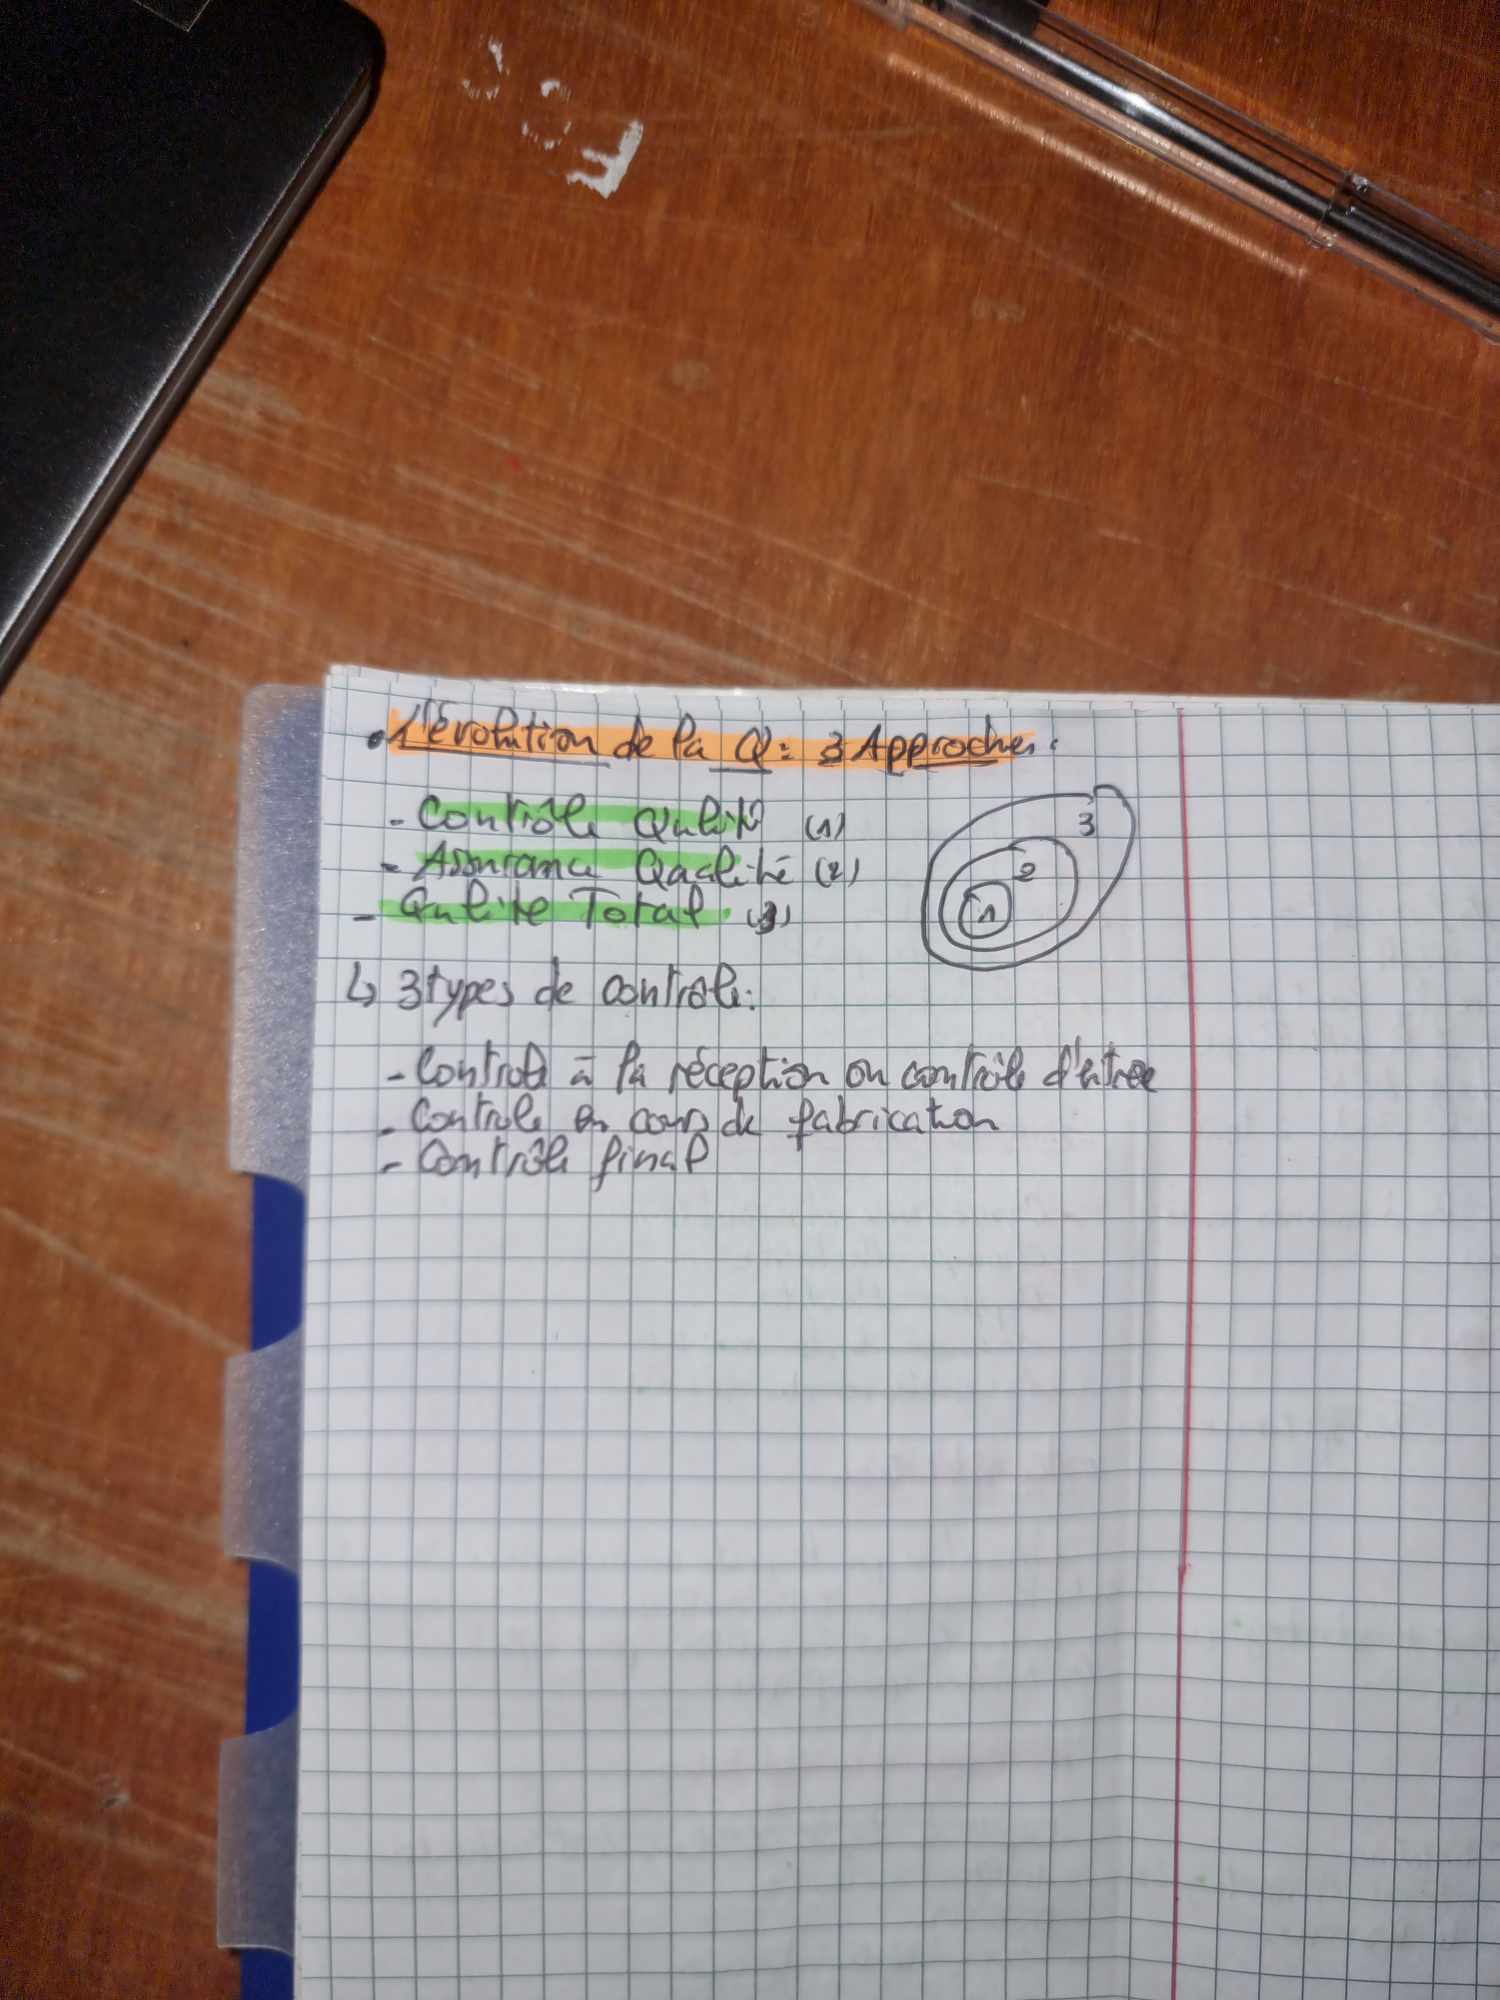 • L'évolution de la Q : 3 Approches.
- Contrôle Qualité (1)
- Assurance Qualité (2)
- Qulite Total. (3)
3
2
1
↳ 3 types de contrôle:
- Controle à la réception ou contrôle d'entree
- Controle en cours de fabrication
- Contrôle final